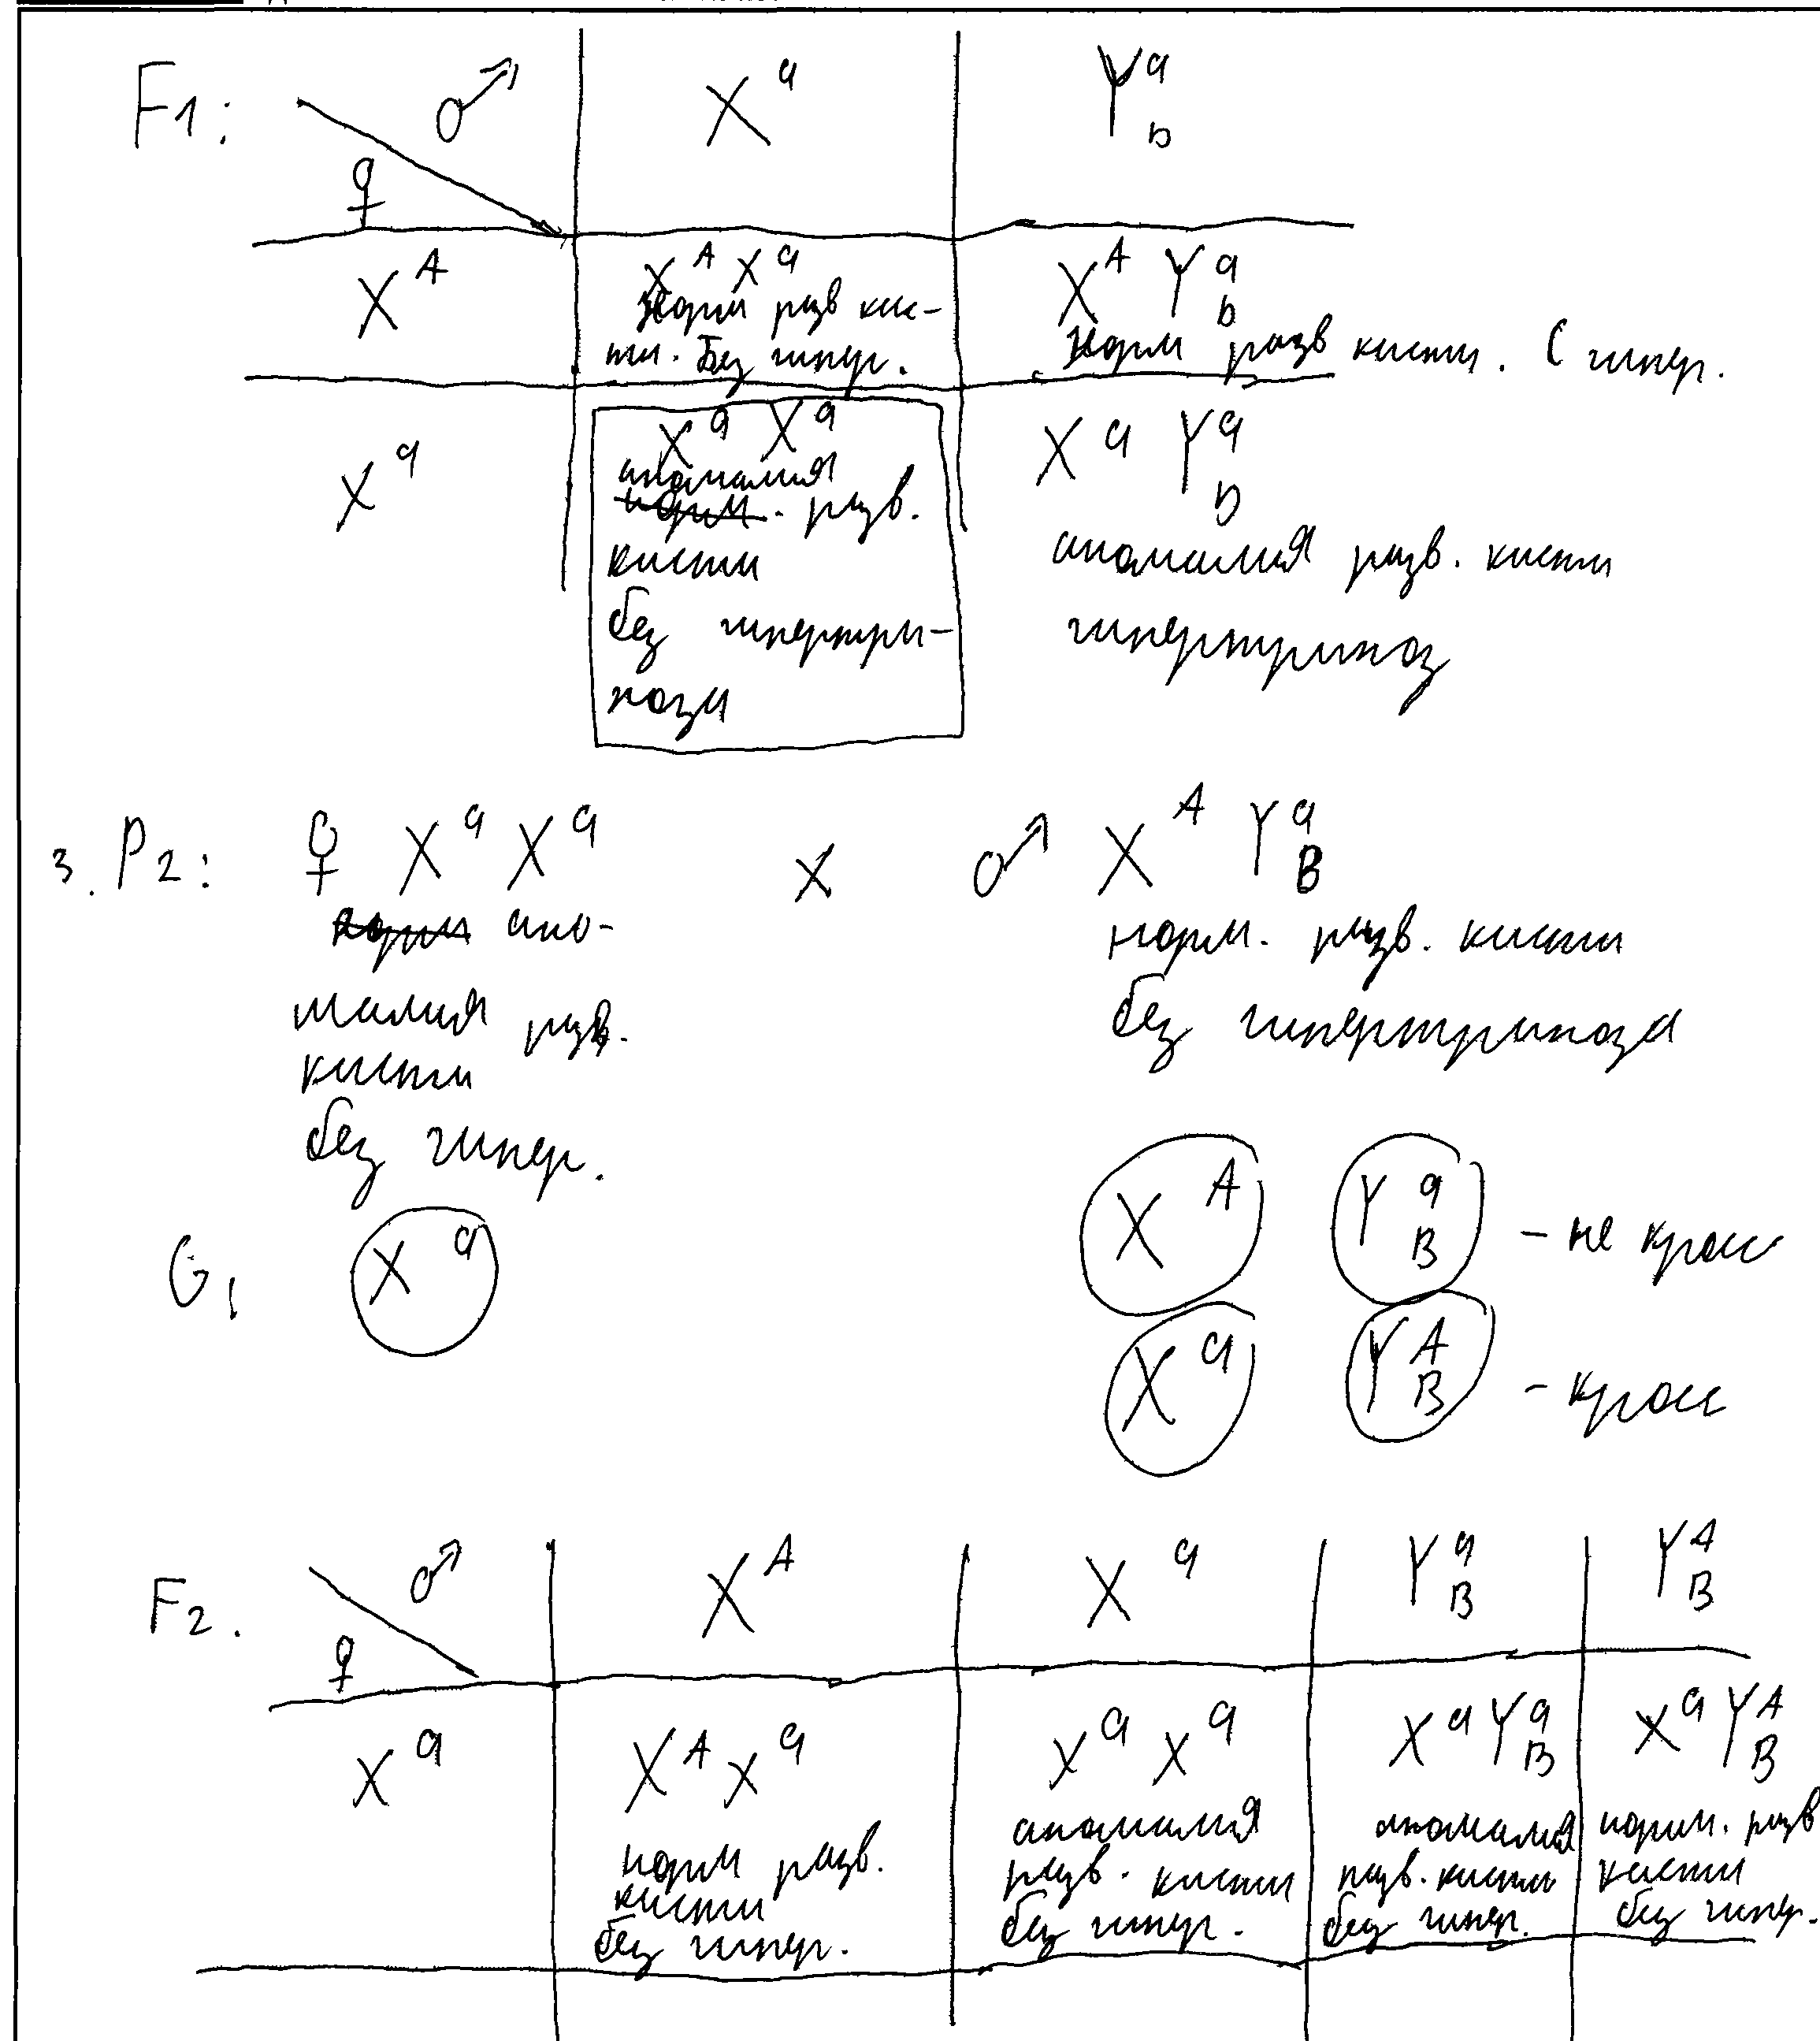 F1: ♂ X^a Y^a_b
♀
X^A X^A X^a X^A Y^a_b
Норм разв кис-
ти. Без гипер. Норм разв кисти. С гипер.
X^a X^a X^a X^a Y^a_b
аномалия
норм. разв.
кисти
без гипертри-
хоза
аномалия разв. кисти
гипертрихоз
3. P2: ♀ X^a X^a x ♂ X^A Y^a_B
норм ано-
малия разв.
кисти
без гипер.
норм. разв. кисти
без гипертрихоза
G1 X^a X^A Y^a_B - не кросс
X^a Y^A_B - кросс
F2. ♂ X^A X^a Y^a_B Y^A_B
♀
X^a X^A X^a X^a X^a X^a Y^a_B X^a Y^A_B
норм разв.
кисти
без гипер.
аномалия
разв. кисти
без гипер.
аномалия
разв. кисти
без гипер.
норм. разв
кисти
без гипер.